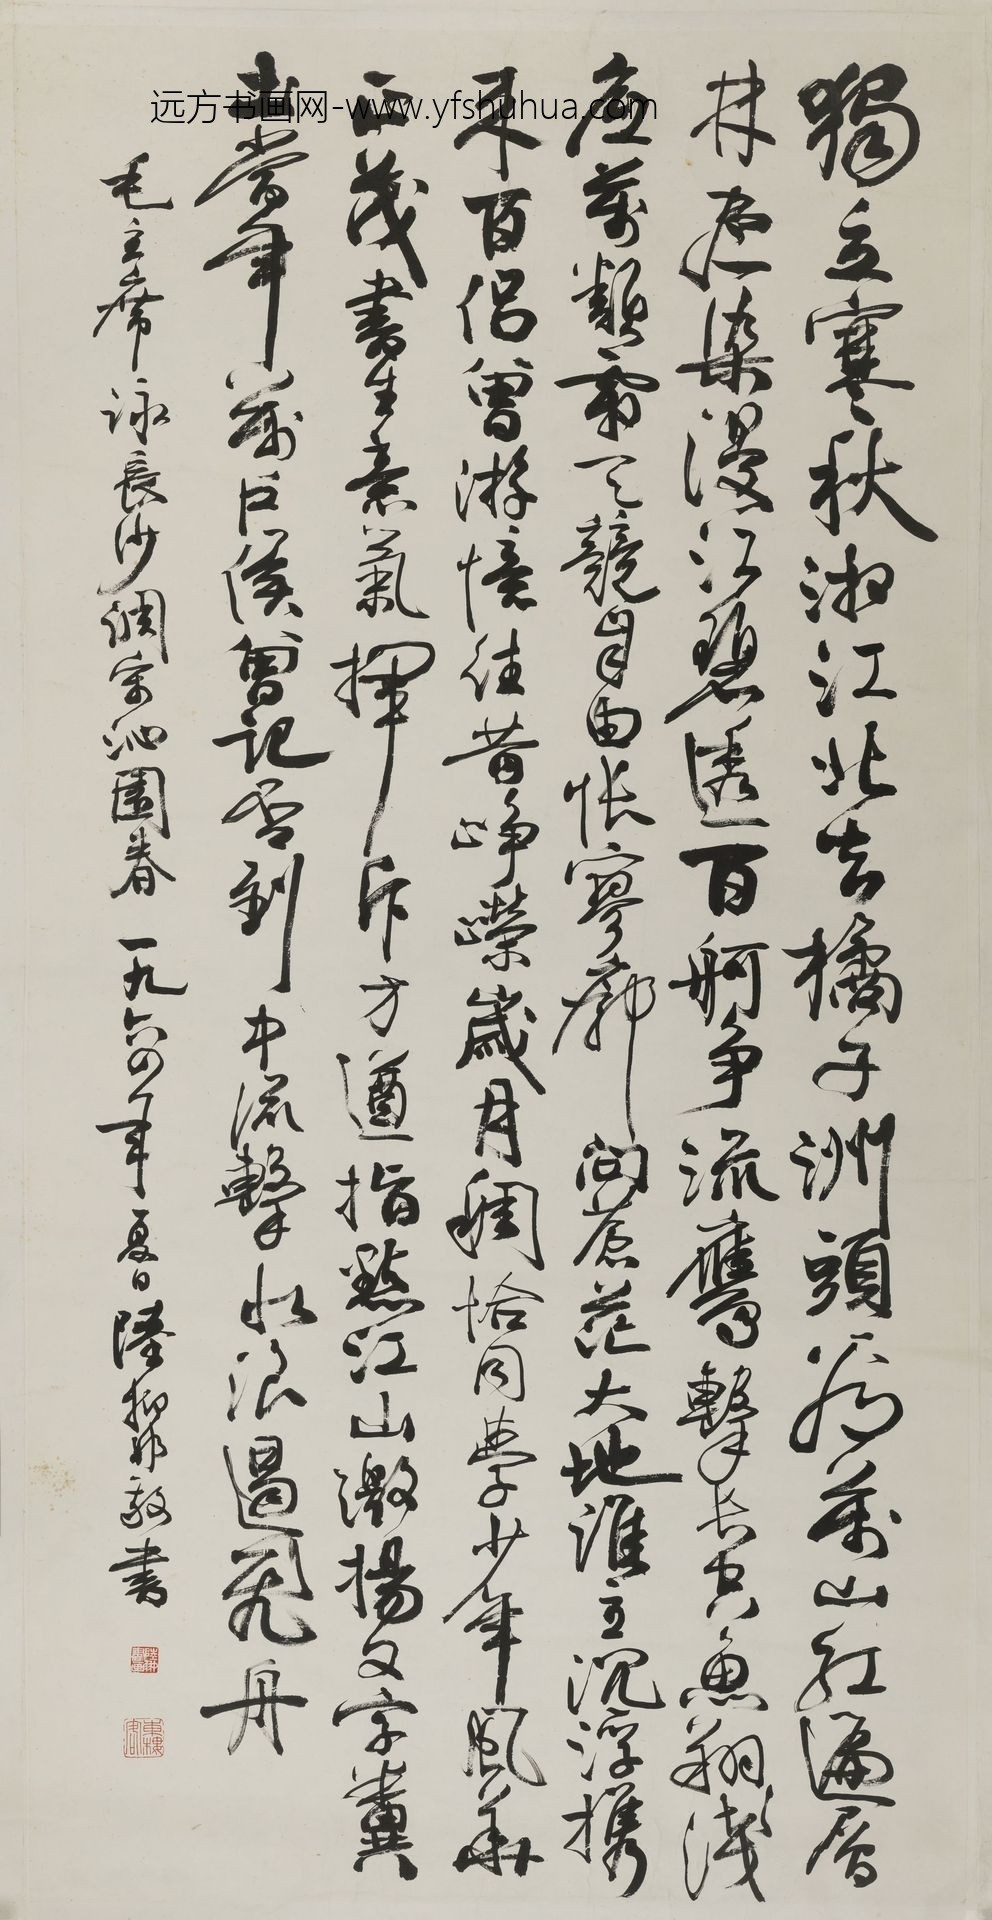 远方书画网-www.yfshuhua.com
獨立寒秋湘江北去橘子洲頭看萬山紅遍層
林盡染漫江碧透百舸争流鷹擊長空魚翔淺
底萬類霜天競自由悵寥廓问蒼茫大地誰主沉浮携
来百侣曾游憶往昔峥嶸歲月稠恰同學少年風華
正茂書生意氣揮斥方遒指點江山激揚文字糞
土當年萬户侯曾記否到中流擊水浪遏飛舟
毛主席詠長沙調寄沁園春 一九六四年夏日陸抑非敬書